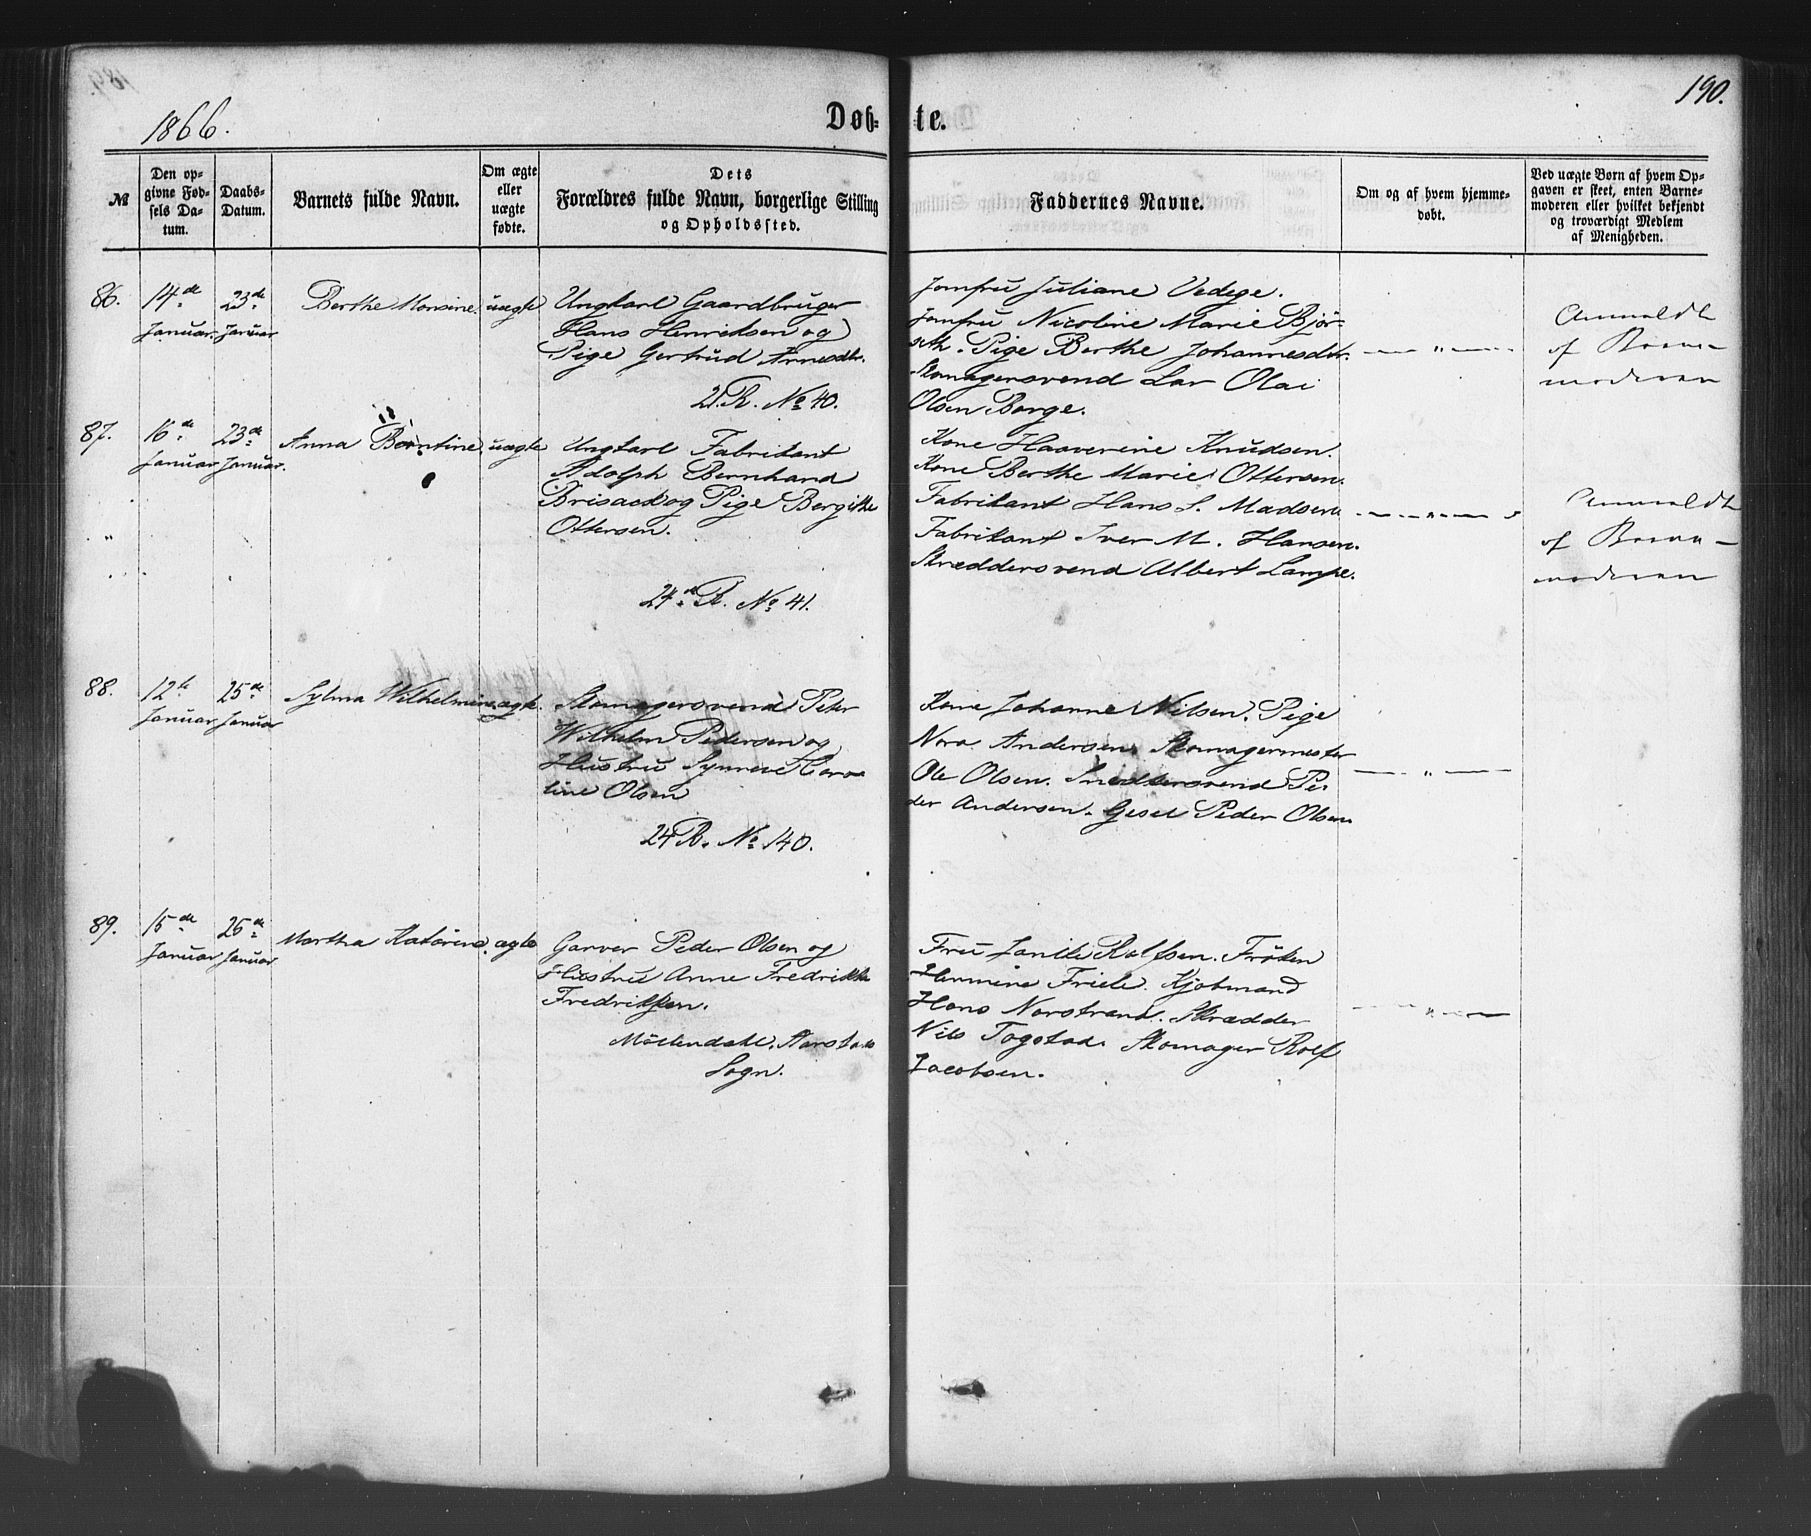 190.
1866.
Døb- te.
№
Den op-
givne Fød-
sels Da-
tum.
Daabs-
Datum.
Barnets fulde Navn.
Om ægte
eller
uægte
fødte.
Dets
Forældres fulde Navn, borgerlige Stilling
og Opholdssted.
Faddernes Navne.
Om og af hvem hjemme-
døbt.
Ved uægte Børn af hvem Op-
gaven er skeet, enten Barne-
moderen eller hvilket bekjendt
og troværdigt Medlem
af Menigheden.
86.
14de
Januar.
23de
Januar
Berthe Monsine.
uægte
Ungkarl Gaardbruger
Hans Henriksen og
Pige Gertrud Arnesdtr.
21. R. No 40.
Jomfru Juliane Vedege.
Jomfru Nicoline Marie Bjør-
seth. Pige Berthe Johannesdtr.
Skomagersvend Lar Olai
Olsen Borge.
— " —
Anmeldt
af Barne-
moderen
87.
16de
Januar
23de
Januar.
Anna Berntine.
uægte
Ungkarl Fabrikant
Adolph Bernhard
Brisack og Pige Bergithe
Ottersen.
24de R. No 41.
Kone Haaverine Knudsen.
Kone Berthe Marie Ottersen.
Fabrikant Hans S. Madsen
Fabrikant Iver M. Hansen.
Skræddersvend Albert Lampe.
— " —
Anmeldt
af Barne-
moderen
88.
12te
Januar
25de
Januar
Sylma Wilhelmine.
ægte.
Skomagersvend Peter
Wilhelm Pedersen og
Hustru Synneve Caro-
line Olsen
24 R. No 140.
Kone Johanne Nilsen. Pige
Nora Andersen. Skomagermester
Ole Olsen. Snedkersvend Pe-
der Andersen. Gesel Peder Olsen
— " —
89.
15de
Januar
26de
Januar
Martha Katarina.
ægte
Garver Peder Olsen og
Hustru Anne Fredrikke
Fredriksen.
Möllendahl. Aarstads
Sogn.
Fru Jantte Rolfsen. Fröken
Hermine Friele. Kjøbmand
Hans Norstrand. Skrædder
Nils Togstad. Skomager Rolf
Jacobsen.
— " —